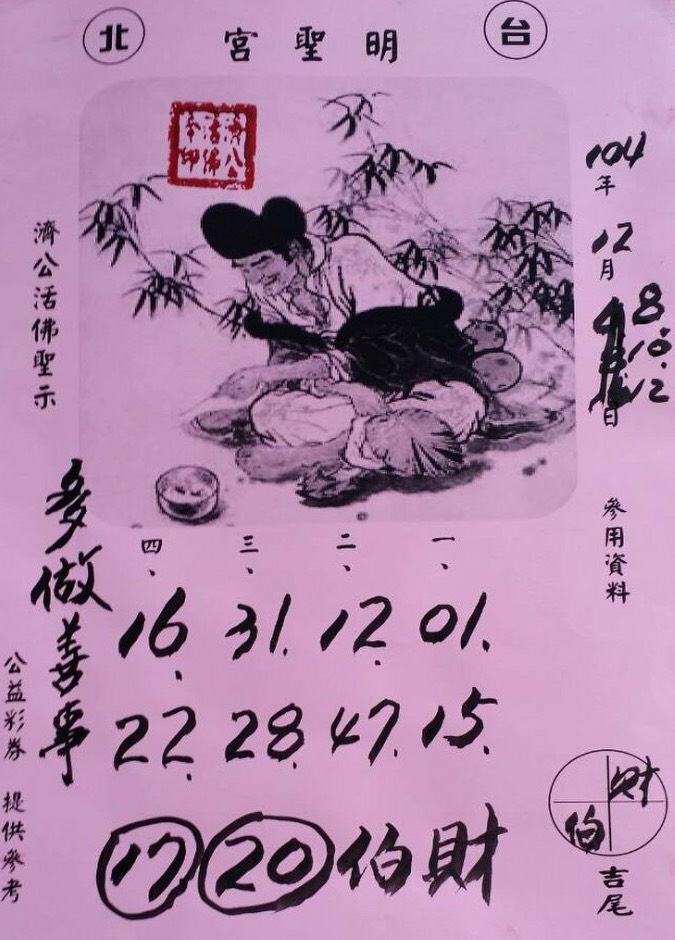 台 明聖宮 北
104年
12月
8.10.12日
參用資料
濟公活佛聖示
一、二、三、四、
01. 12. 31. 16.
15. 47. 28. 22.
財伯 20 17
多做善事
公益彩券 提供參考
財
伯
吉尾